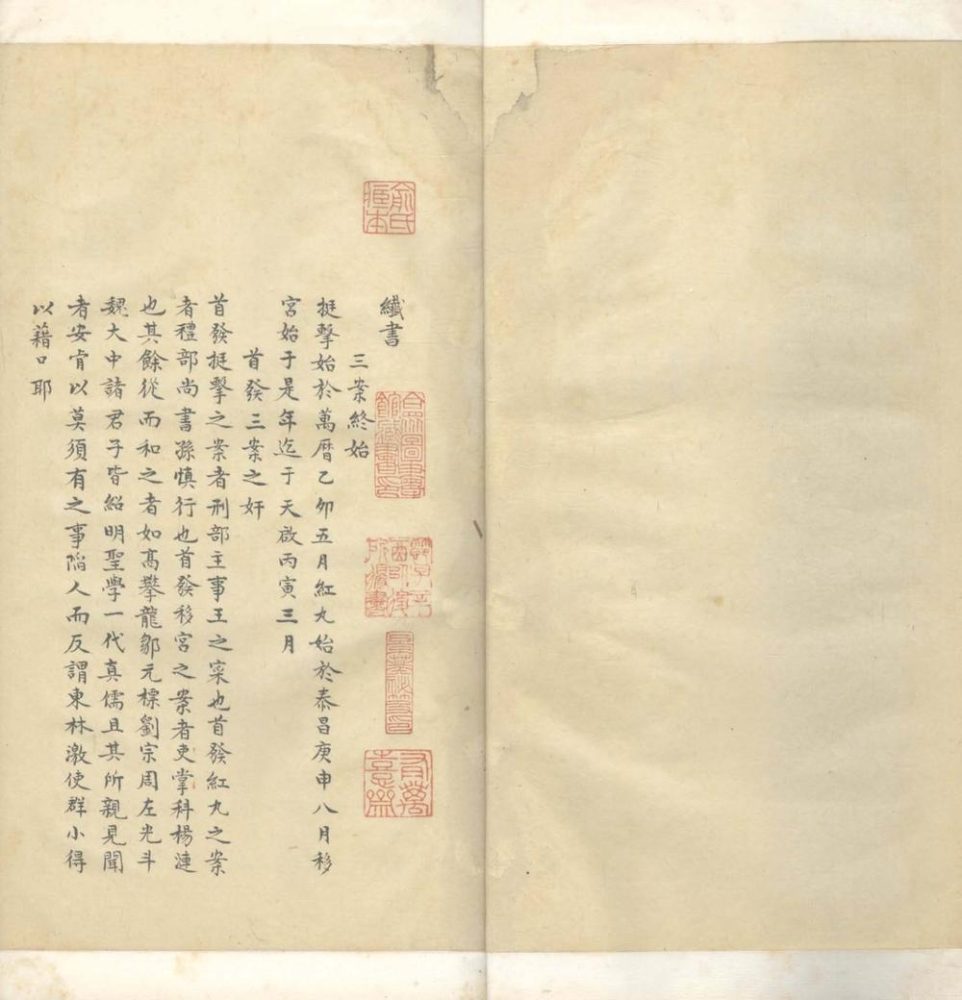 纖書
三案終始
挺擊始於萬曆乙卯五月紅丸始於泰昌庚申八月移
宮始于是年迄于天啟丙寅三月
首發三案之奸
首發挺擊之案者刑部主事王之寀也首發紅丸之案
者禮部尚書孫慎行也首發移宮之案者吏掌科楊漣
也其餘從而和之者如高攀龍鄒元標劉宗周左光斗
魏大中諸君子皆紹明聖學一代真儒且其所親見聞
者安肯以莫須有之事陷人而反謂東林激使群小得
以藉口耶
俞氏